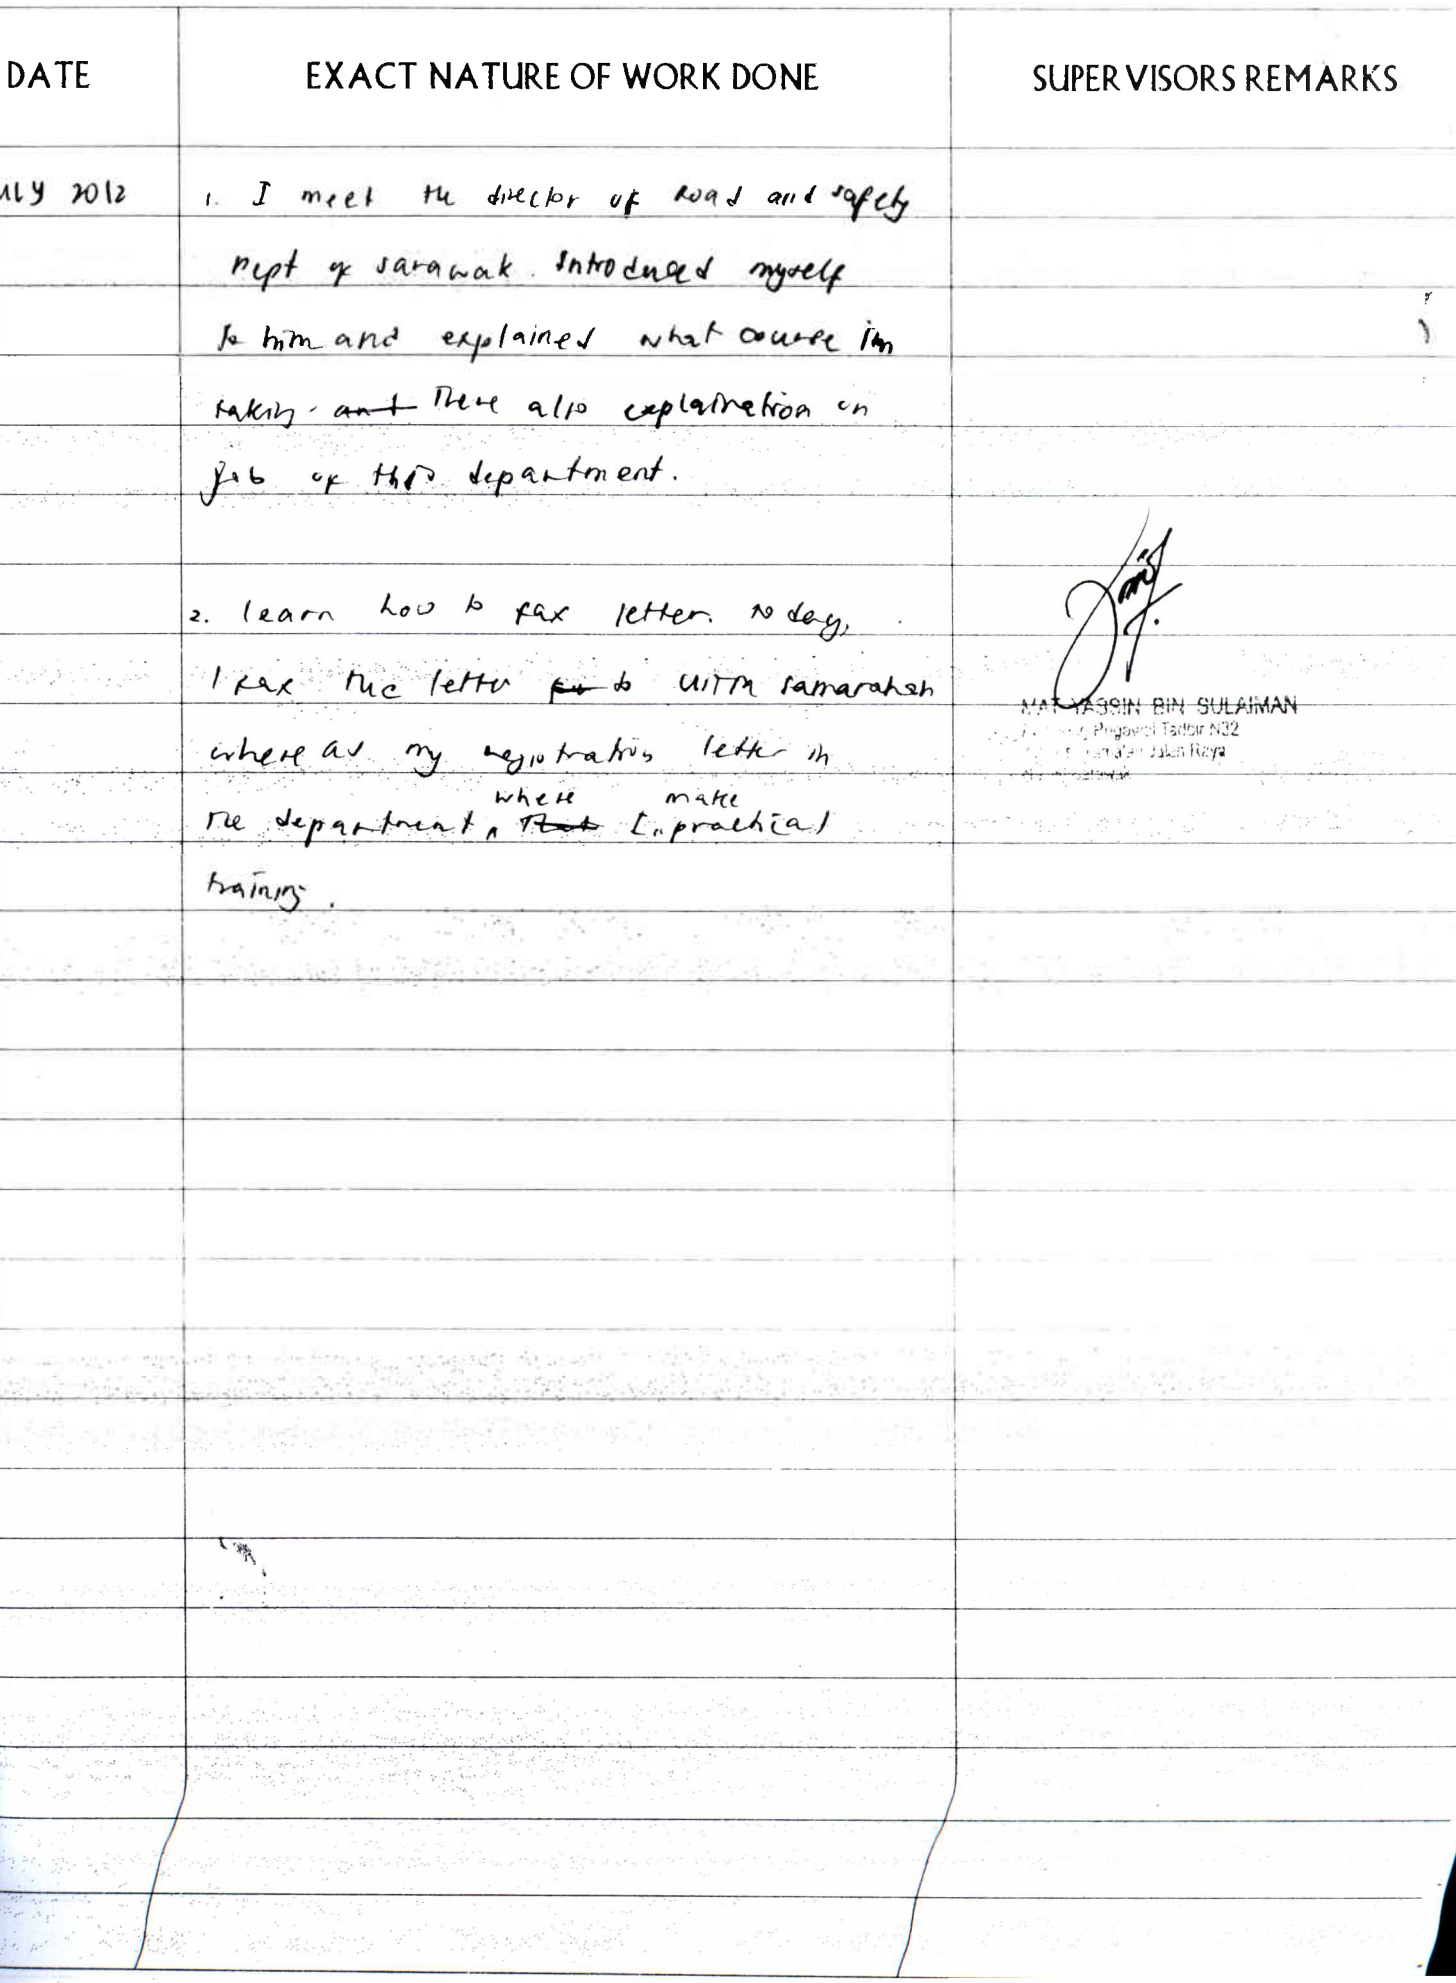 DATE EXACT NATURE OF WORK DONE SUPERVISORS REMARKS
ULY 2012 1. I meet the director of Road and safety
Dept of Sarawak. Introduced myself
to him and explained what course i'm
taking. and There also explaination on
job of this department.
2. learn how to fax letter. Today,
I fax the letter to UiTM Samarahan
where as my registration letter in
where make
the department, That I practical
training.
MAT YASSIN BIN SULAIMAN
Pegawai Tadbir N32
Jalan Raya